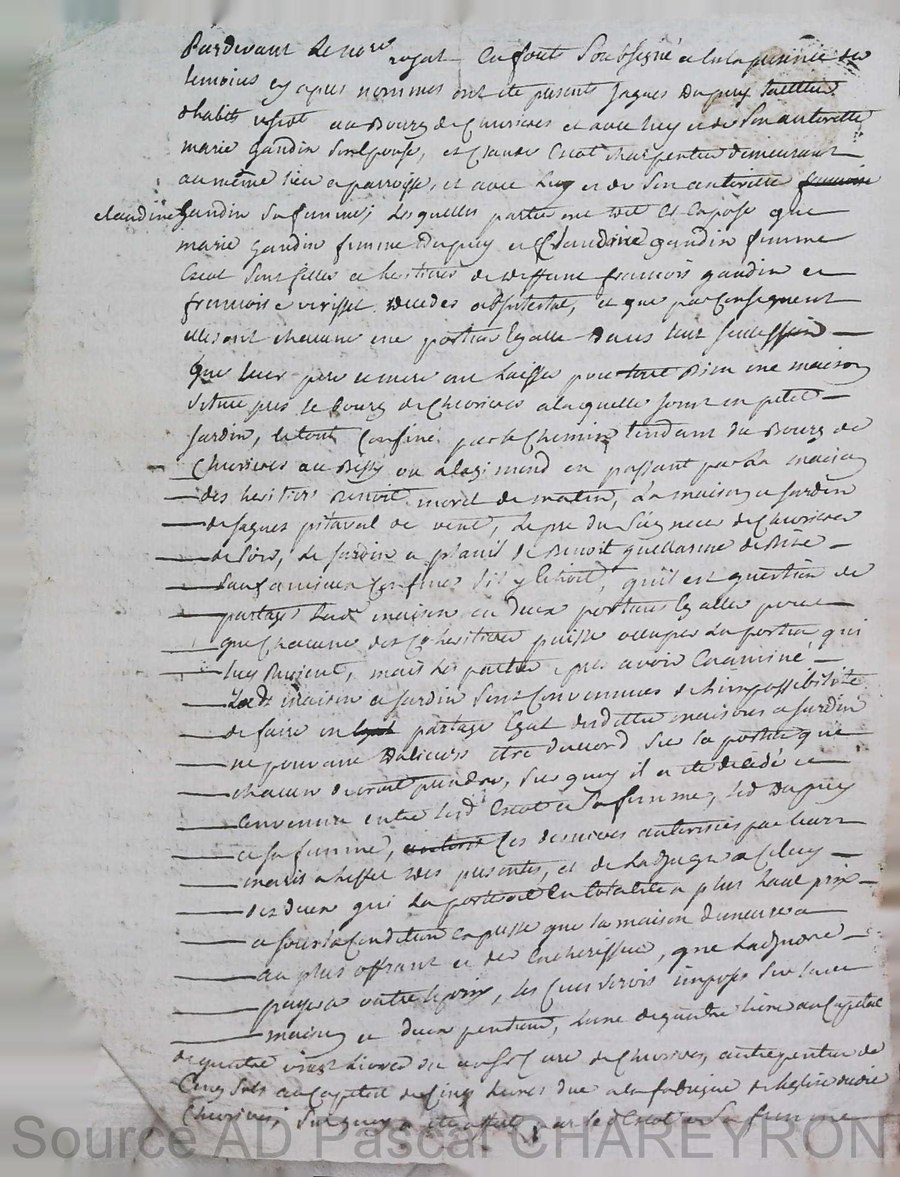 Pardevant Le no.re royal En fout Soubsigné et en la présence des
temoins cy apres nommés ont été presents Jaques Dupuy
d'habits au Bourg de Chevrieres et avec luy et de Son autorité
marie gaudin Son Epouse, et Claude Crot charpentier demeurant
au même lieu et parroisse, et avec Luy et de Son autorité francoise
claudine Gaudin Sa femme; Lesquelles parties ont dit Et Exposé que
marie gaudin femme Dupuy et Claudine gaudin femme
Sont filles et heritieres de deffunt francois gaudin et
francoise virisset decedes et que par Consequent
elles ont chacune une portion Egalle Dans leur Succession
Que leur pere et mere ont Laissé pour tout Bien une maison
Située près le bourg de Chevrieres a laquelle joint un petit
Jardin, le tout Confiné par le Chemin tendant du Bourg de
Chevrieres au en passant par La maison
des heritiers Benoit de matin, La maison et Jardin
de Jaques pitaval de vent, Le pré du Seigneur de Chevrieres
de Soir, Le Jardin et de Benoit de Bize
Sauf Confins S'il y Echoit, qu'il est question de
partager Lad. maison en deux portions Egalles pour
que Chacune des Coheritieres puisse occuper La portion qui
luy Revient, mais Les parties après avoir Examiné
Lad. maison et Jardin Sont Convenues de L'impossibilité
de faire un Egal partage Egal desdittes maisons et Jardin
ne pouvant D'ailleurs etre d'accord Sur la portion que
chacun devroit prendre, Sur quoy il a été decidé et
Convenu entre Led. Crot et Sa femme, led Dupuy
et Sa femme, Ces dernieres autorisées par leurs
maris a L'effet des presentes, et de L'adjuger a Celuy
des deux qui La portera En totalité a plus haut prix
et Sous la Condition Expresse que la maison demeurera
au plus offrant et dernier Encherisseur, que L'adjudre
payera outre le prix, les imposés Sur lade
maison et deux pensions, L'une de quatre livres au Capital
de quatre vingt Livres due au Sr Curé de Chevrieres, autre pension de
Cinq Sols au Capital de Cinq Livres due a la fabrique de L'eglise dudit
Chevrieres; Sur quoy a été offert par led Crot et Sa femme
Source AD Pascal CHAREYRON